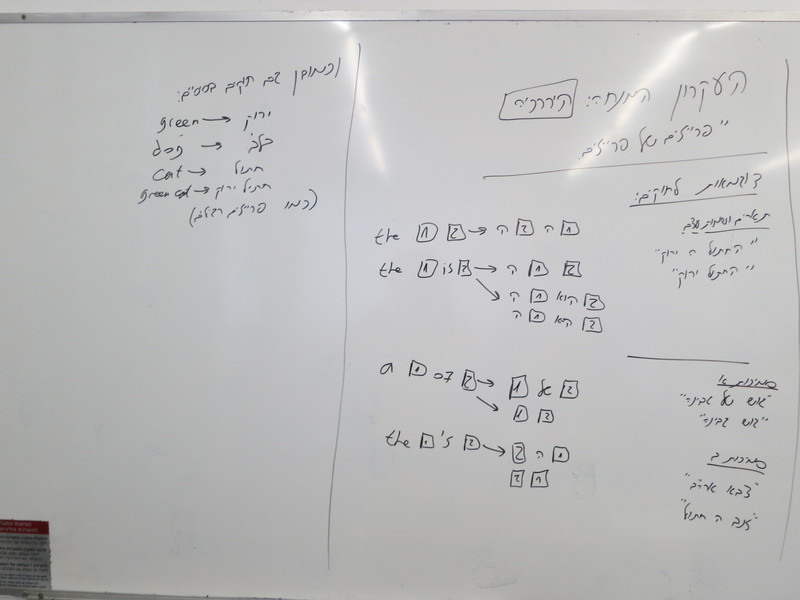 העקרון המנחה: היררכיה
"פרייזים של פרייזים"
דוגמאות לחוקים:
תארים ושמות עצם
"החתול ה ירוק"
"החתול ירוק"
the 1 2 → ה 2 ה 1
the 1 is 2 → ה 1 2
ה 1 הוא 2
ה 1 היא 2
סמיכות א
"גוש של גבינה"
"גוש גבינה"
a 1 of 2 → 1 של 2
1 2
סמיכות ב
"צבא ארה"ב"
"זנב ה חתול"
the 1's 2 → 2 ה 1
2 1
וכמובן גם חוקים בסיסיים:
green → ירוק
dog → כלב
cat → חתול
green cat → חתול ירוק
(כמו פרייזים רגילים)